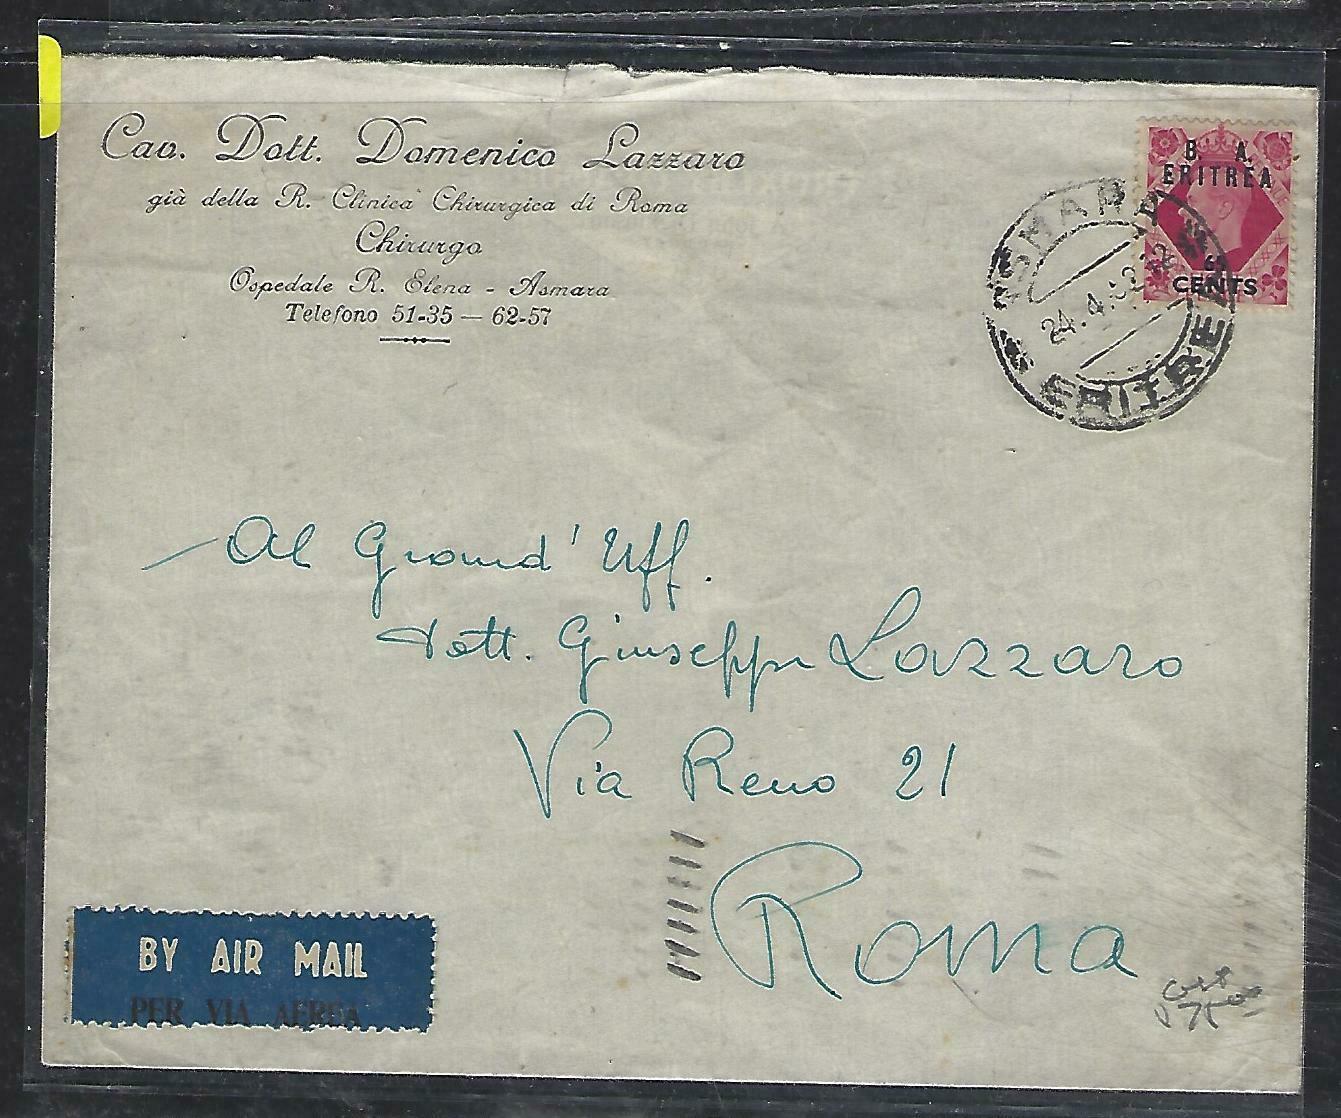 Cav. Dott. Domenico Lazzaro
già della R. Clinica Chirurgica di Roma
Chirurgo
Ospedale R. Elena - Asmara
Telefono 51-35 — 62-57
B. A.
ERITREA
CENTS
ASMARA
24.4.
ERITREA
Al Grand'Uff.
Dott. Giuseppe Lazzaro
Via Reno 21
Roma
BY AIR MAIL
PER VIA AEREA